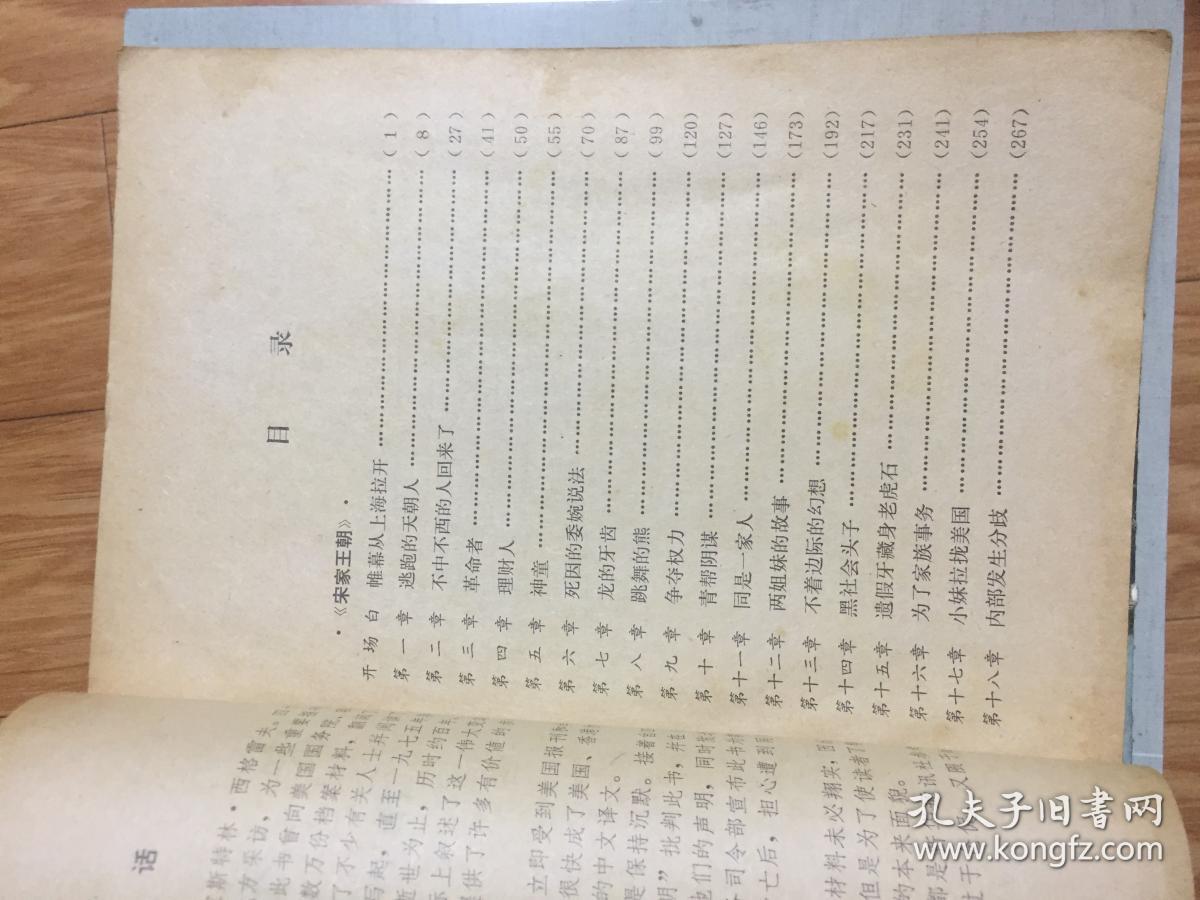 话
斯特林·西格雷夫。
方采访，为一些重要
此书曾向美国国务院、
数万份档案材料，
了不少有关人士并阅
写起，直至一九七五年
近世为止，历时约百年，
际上叙述了这一伟大
提供了许多有价值的
立即受到美国报刊
很快成了美国、香
的中文译文。
是保持沉默。接着
明”批判此书，并
也们的声明，同时
司令部宣布此书
亡后，担心遭到
材料未必翔实，
但是为了使读者了
的本来面貌。
目 录
·《宋家王朝》·
开场白 帷幕从上海拉开……（1）
第一章 逃跑的天朝人……（8）
第二章 不中不西的人回来了……（27）
第三章 革命者……（41）
第四章 理财人……（50）
第五章 神童……（55）
第六章 死因的委婉说法……（70）
第七章 龙的牙齿……（87）
第八章 跳舞的熊……（99）
第九章 争夺权力……（120）
第十章 青帮阴谋……（127）
第十一章 同是一家人……（146）
第十二章 两姐妹的故事……（173）
第十三章 不着边际的幻想……（192）
第十四章 黑社会头子……（217）
第十五章 遗假牙藏身老虎石……（231）
第十六章 为了家族事务……（241）
第十七章 小妹拉拢美国……（254）
第十八章 内部发生分歧……（267）
孔夫子旧书网
www.kongfz.com